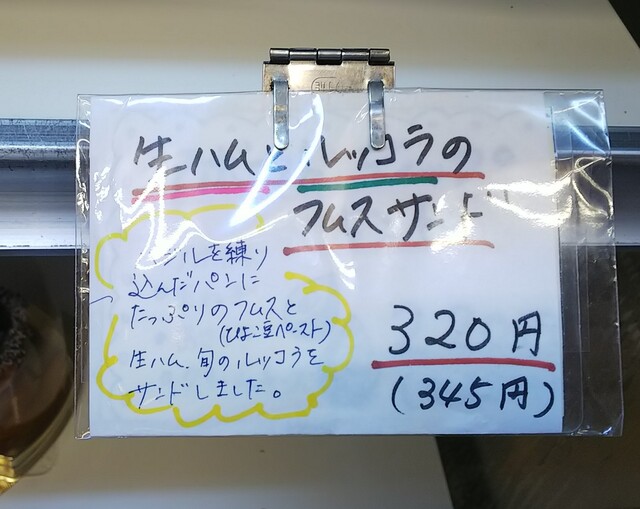 生ハムとルッコラの
フムスサンド
ジルを練り
込んだパンに
たっぷりのフムスと
(ひよこ豆ペースト)
生ハム、旬のルッコラを
サンドしました。
320円
(345円)